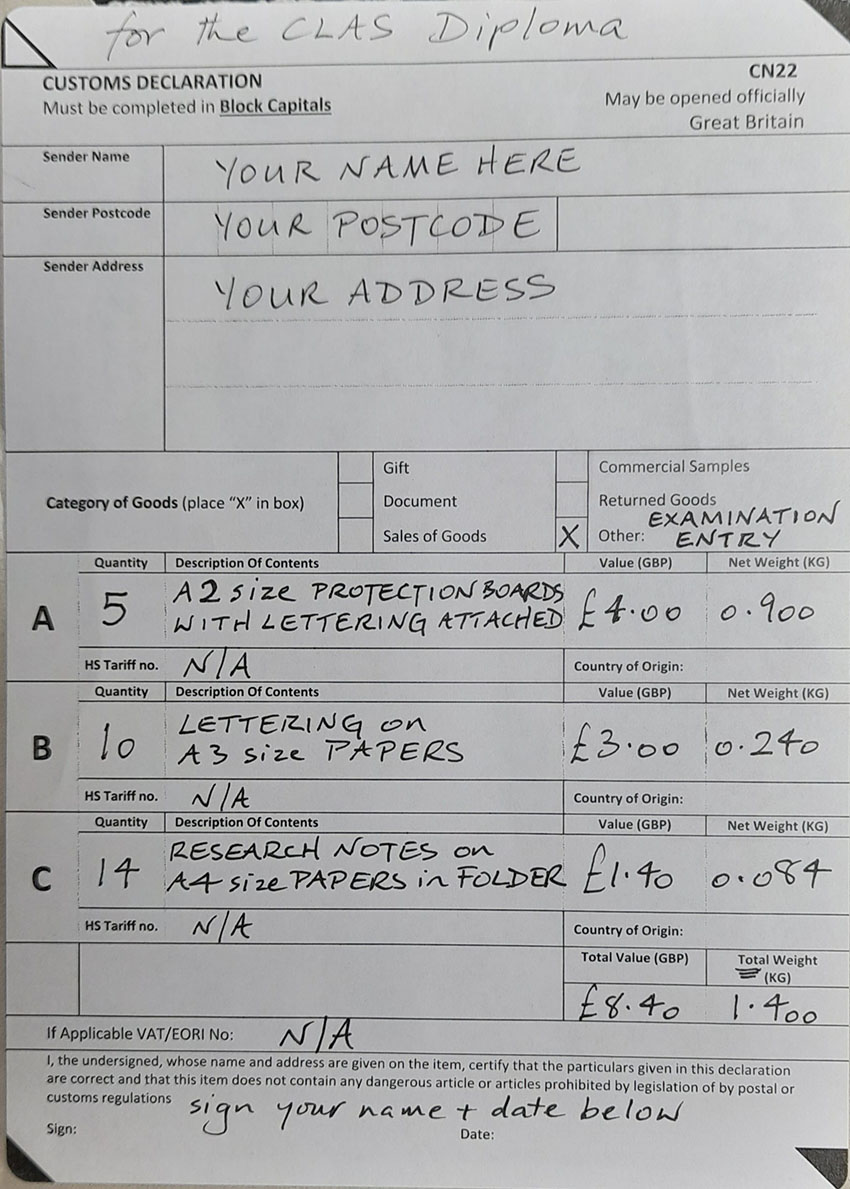 for the CLAS Diploma
CUSTOMS DECLARATION
CN22
Must be completed in Block Capitals
May be opened officially
Great Britain
Sender Name
YOUR NAME HERE
Sender Postcode
YOUR POSTCODE
Sender Address
YOUR ADDRESS
Category of Goods (place “X” in box)
Gift
Commercial Samples
Document
Returned Goods
Sales of Goods
X
Other: EXAMINATION
ENTRY
Quantity Description Of Contents Value (GBP) Net Weight (KG)
A 5 A2 size PROTECTION BOARDS
WITH LETTERING ATTACHED £4.00 0.900
HS Tariff no. N/A Country of Origin:
Quantity Description Of Contents Value (GBP) Net Weight (KG)
B 10 LETTERING on
A3 size PAPERS £3.00 0.240
HS Tariff no. N/A Country of Origin:
Quantity Description Of Contents Value (GBP) Net Weight (KG)
C 14 RESEARCH NOTES on
A4 size PAPERS in FOLDER £1.40 0.084
HS Tariff no. N/A Country of Origin:
Total Value (GBP) Total Weight
(KG)
£8.40 1.400
If Applicable VAT/EORI No: N/A
I, the undersigned, whose name and address are given on the item, certify that the particulars given in this declaration
are correct and that this item does not contain any dangerous article or articles prohibited by legislation of by postal or
customs regulations sign your name + date below
Sign: Date: